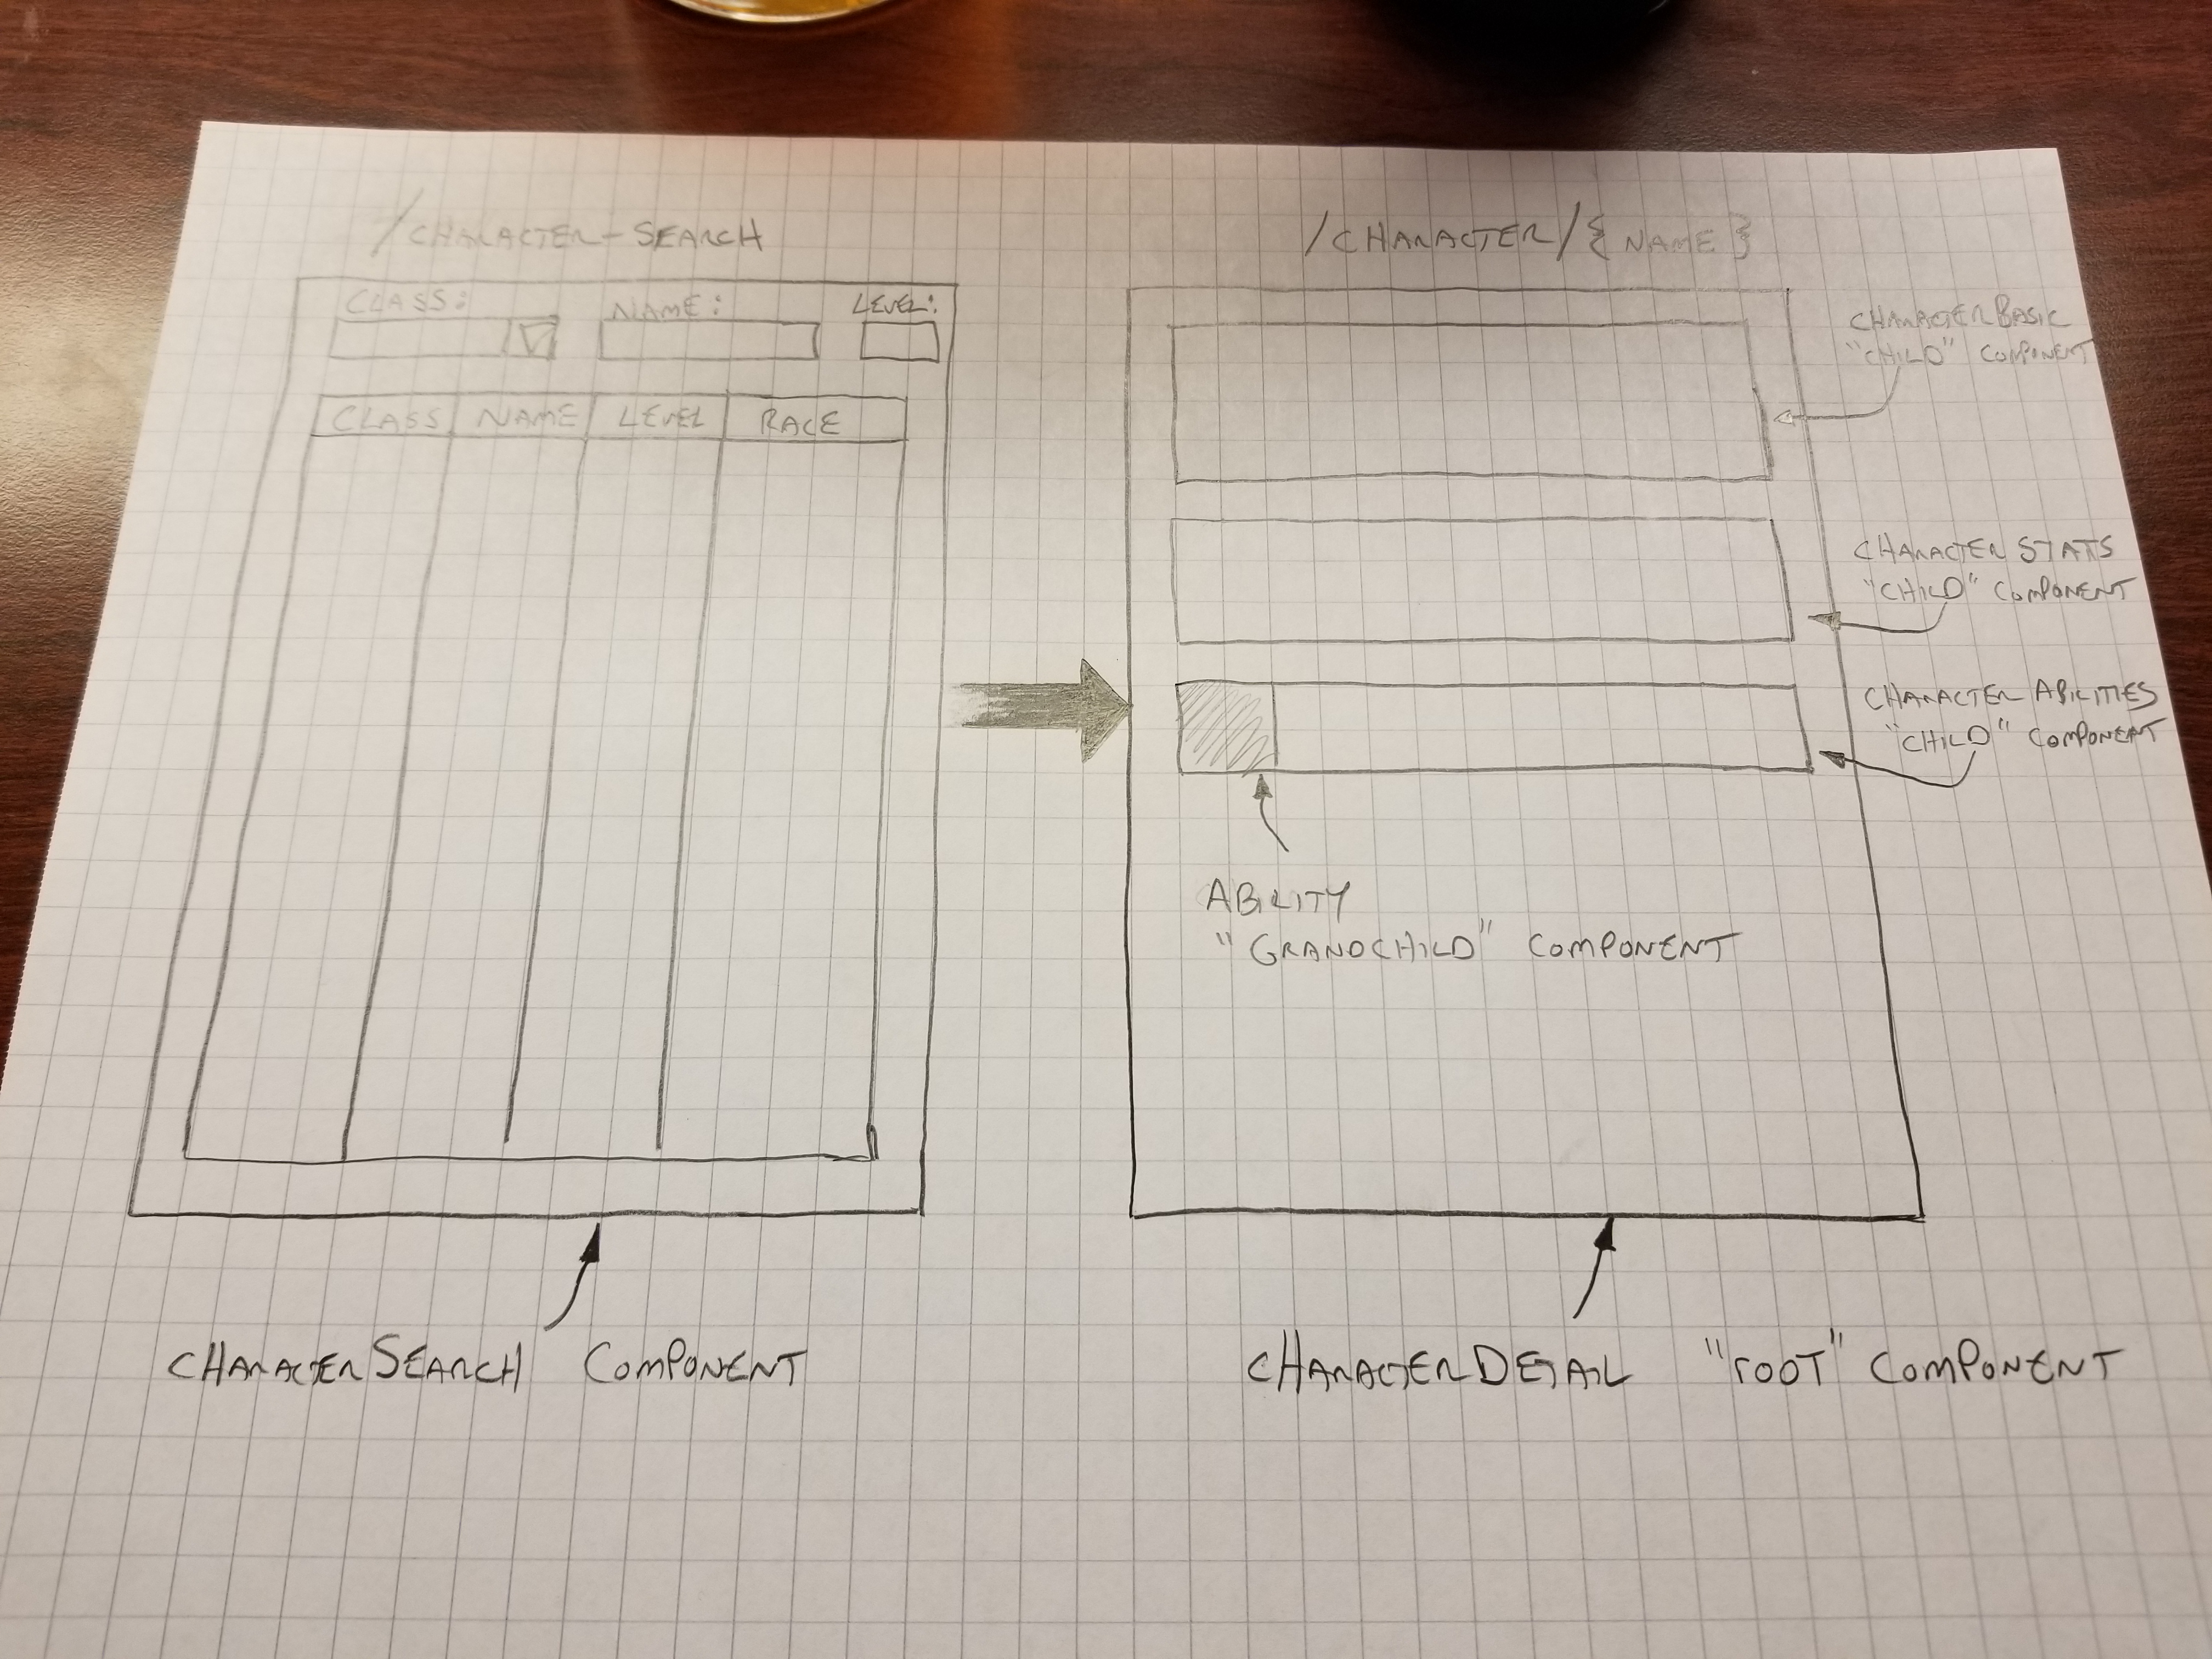 /CHARACTER-SEARCH
CLASS:
NAME:
LEVEL:
CLASS
NAME
LEVEL
RACE
CHARACTERSEARCH COMPONENT
/CHARACTER/{NAME}
CHARACTERBASIC
"CHILD" COMPONENT
CHARACTER STATS
"CHILD" COMPONENT
CHARACTER ABILITIES
"CHILD" COMPONENT
ABILITY
"GRANDCHILD" COMPONENT
CHARACTERDETAIL "ROOT" COMPONENT